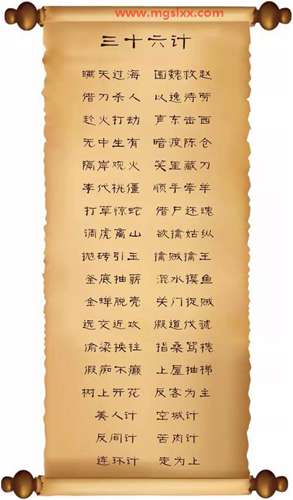 www.mgslxx.com
三十六计
瞒天过海 围魏救赵
借刀杀人 以逸待劳
趁火打劫 声东击西
无中生有 暗度陈仓
隔岸观火 笑里藏刀
李代桃僵 顺手牵羊
打草惊蛇 借尸还魂
调虎离山 欲擒姑纵
抛砖引玉 擒贼擒王
釜底抽薪 混水摸鱼
金蝉脱壳 关门捉贼
远交近攻 假道伐虢
偷梁换柱 指桑骂槐
假痴不癫 上屋抽梯
树上开花 反客为主
美人计 空城计
反间计 苦肉计
连环计 走为上